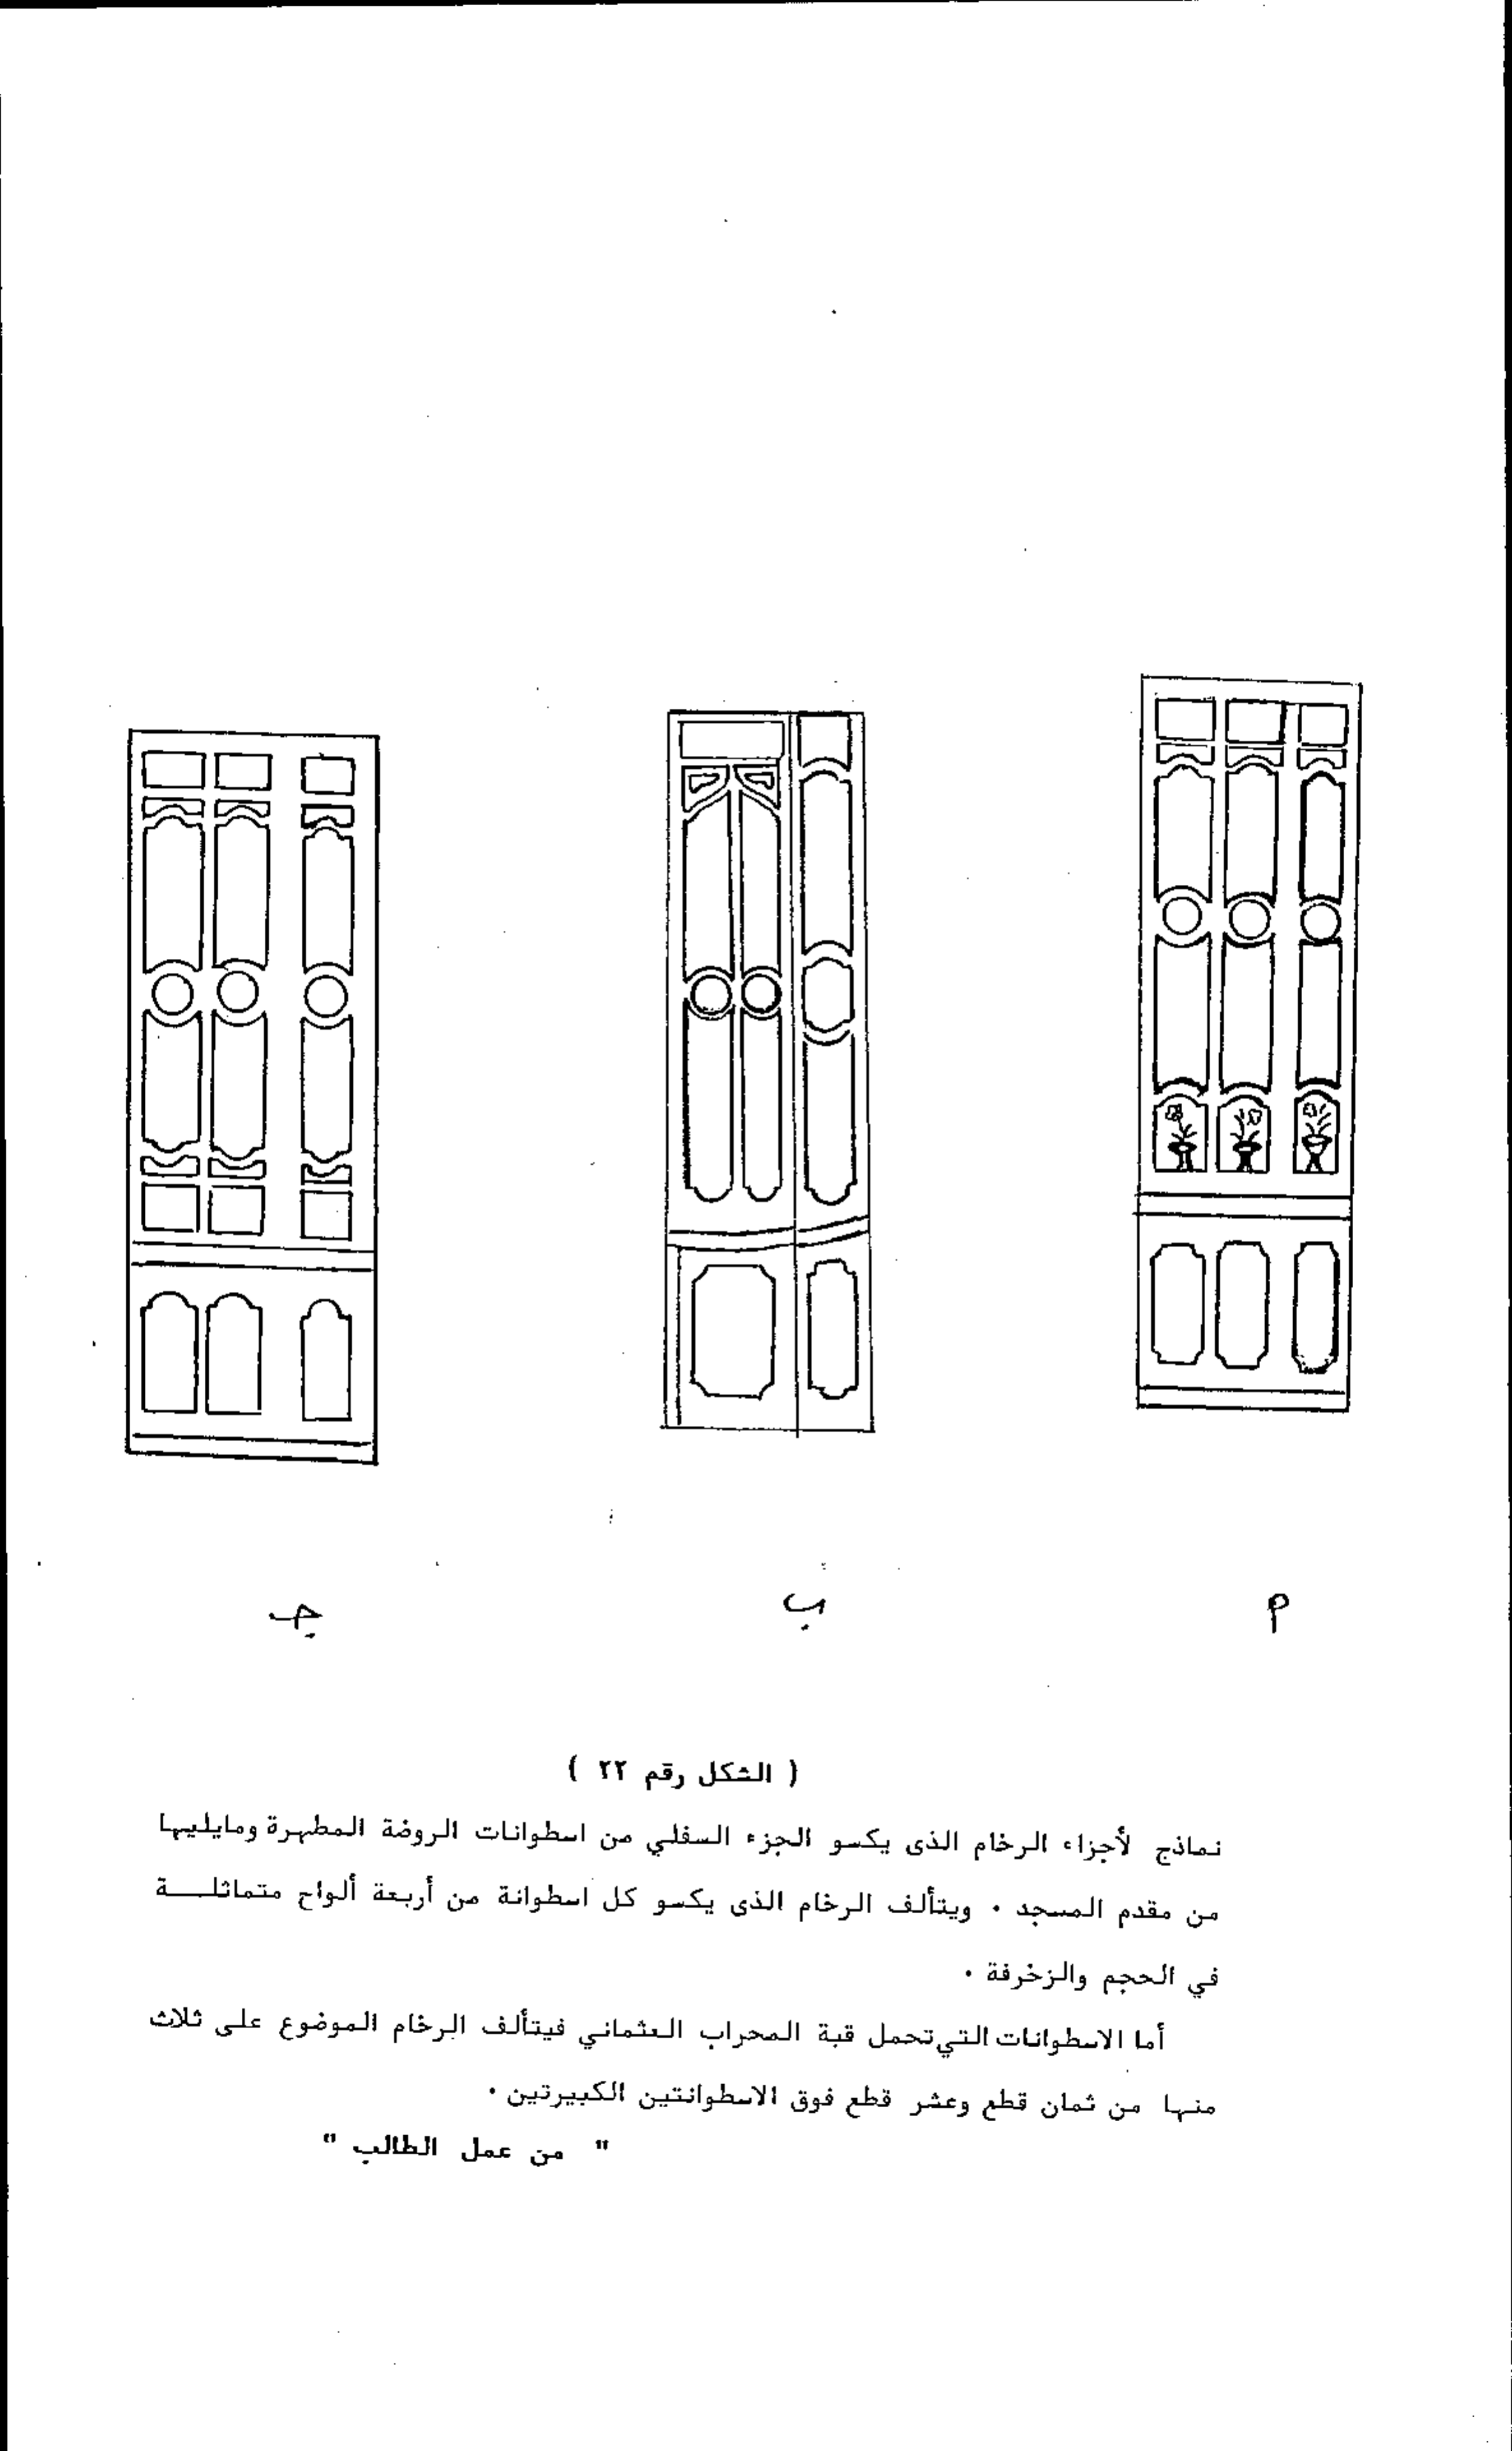 أ ب جـ
( الشكل رقم ٢٢ )
نماذج لأجزاء الرخام الذى يكسو الجزء السفلي من اسطوانات الروضة المطهرة ومايليها
من مقدم المسجد ٠ ويتألف الرخام الذى يكسو كل اسطوانة من أربعة ألواح متماثلـــة
في الحجم والزخرفة ٠
أما الاسطوانات التي تحمل قبة المحراب العثماني فيتألف الرخام الموضوع على ثلاث
منها من ثمان قطع وعشر قطع فوق الاسطوانتين الكبيرتين ٠
" من عمل الطالب "